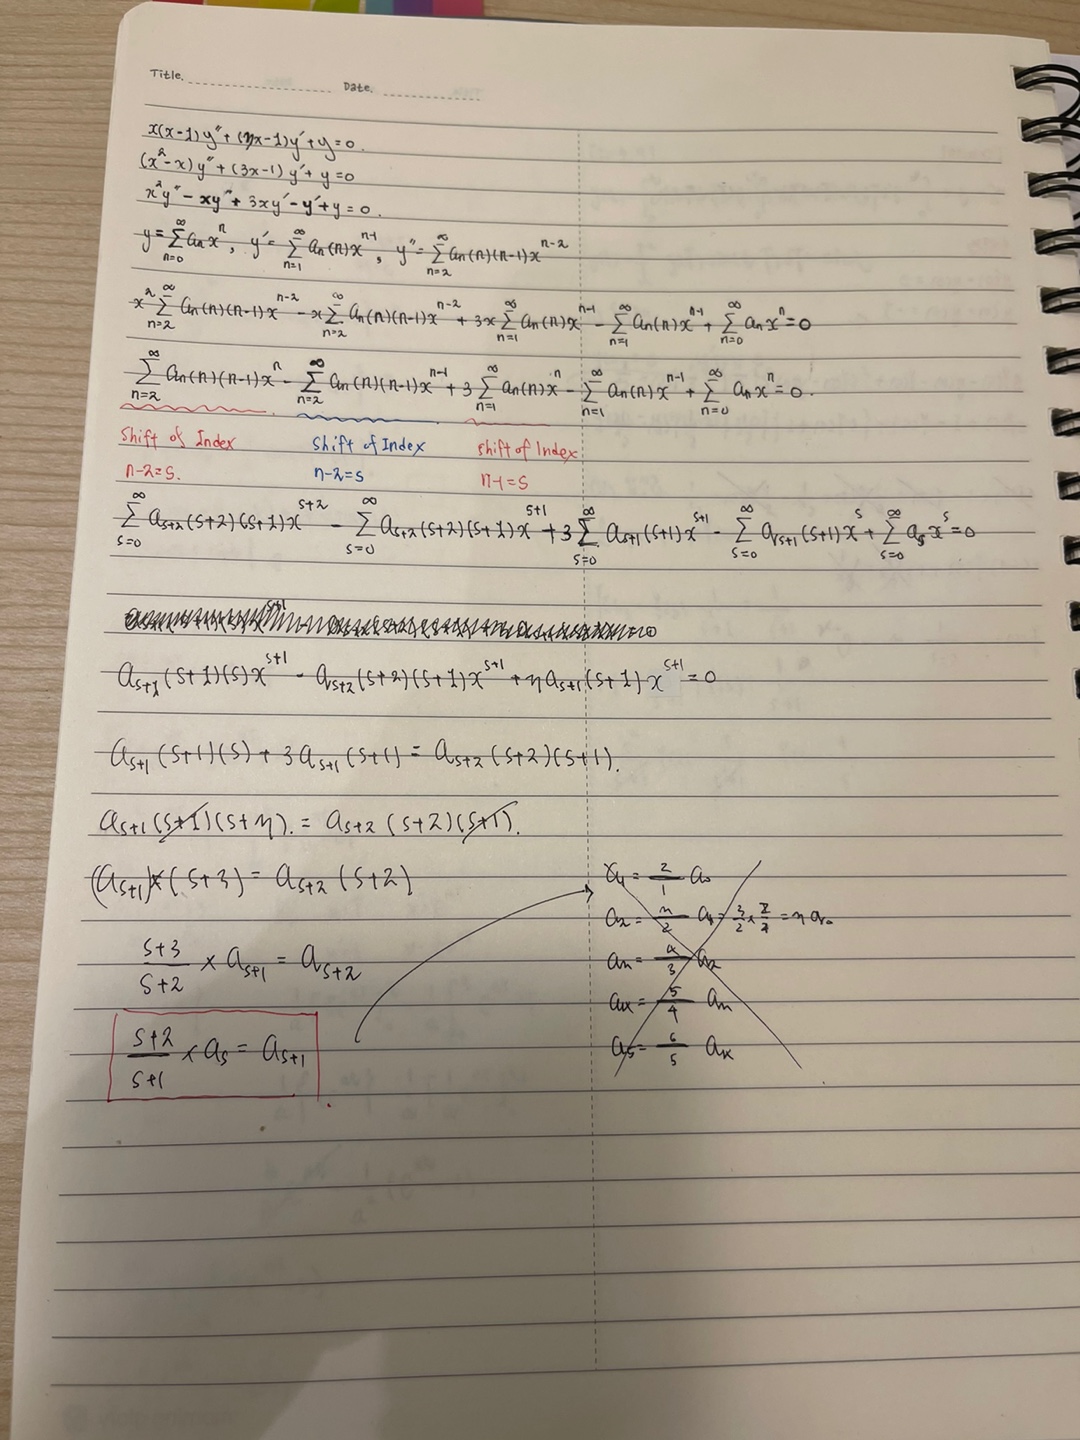 Title.
Date.
x(x-1)y"+(3x-1)y'+y=0.
(x²-x)y"+(3x-1)y'+y=0
x²y"-xy"+3xy'-y'+y=0.
y=∑_{n=0}^{∞} a_n x^n, y'=∑_{n=1}^{∞} a_n(n)x^{n-1}, y"=∑_{n=2}^{∞} a_n(n)(n-1)x^{n-2}
x²∑_{n=2}^{∞} a_n(n)(n-1)x^{n-2} - x∑_{n=2}^{∞} a_n(n)(n-1)x^{n-2} + 3x∑_{n=1}^{∞} a_n(n)x^{n-1} - ∑_{n=1}^{∞} a_n(n)x^{n-1} + ∑_{n=0}^{∞} a_n x^n=0
∑_{n=2}^{∞} a_n(n)(n-1)x^n - ∑_{n=2}^{∞} a_n(n)(n-1)x^{n-1} + 3∑_{n=1}^{∞} a_n(n)x^n - ∑_{n=1}^{∞} a_n(n)x^{n-1} + ∑_{n=0}^{∞} a_n x^n=0.
Shift of Index
Shift of Index
shift of Index
n-2=s.
n-2=s
n-1=s
∑_{s=0}^{∞} a_{s+2}(s+2)(s+1)x^{s+2} - ∑_{s=0}^{∞} a_{s+2}(s+2)(s+1)x^{s+1} + 3∑_{s=0}^{∞} a_{s+1}(s+1)x^{s+1} - ∑_{s=0}^{∞} a_{s+1}(s+1)x^s + ∑_{s=0}^{∞} a_s x^s=0
=0
a_{s+1}(s+1)(s)x^{s+1} - a_{s+2}(s+2)(s+1)x^{s+1} + 3a_{s+1}(s+1)x^{s+1}=0
a_{s+1}(s+1)(s)+3a_{s+1}(s+1)=a_{s+2}(s+2)(s+1).
a_{s+1}(s+1)(s+3).=a_{s+2}(s+2)(s+1).
(a_{s+1})×(s+3)=a_{s+2}(s+2)
\frac{s+3}{s+2} × a_{s+1}=a_{s+2}
\frac{s+2}{s+1} × a_s=a_{s+1}
a_1=\frac{2}{1} a_0
a_2=\frac{3}{2} a_1=\frac{3}{2}×\frac{2}{1}=3a_0
a_3=\frac{4}{3} a_2
a_4=\frac{5}{4} a_3
a_5=\frac{6}{5} a_4